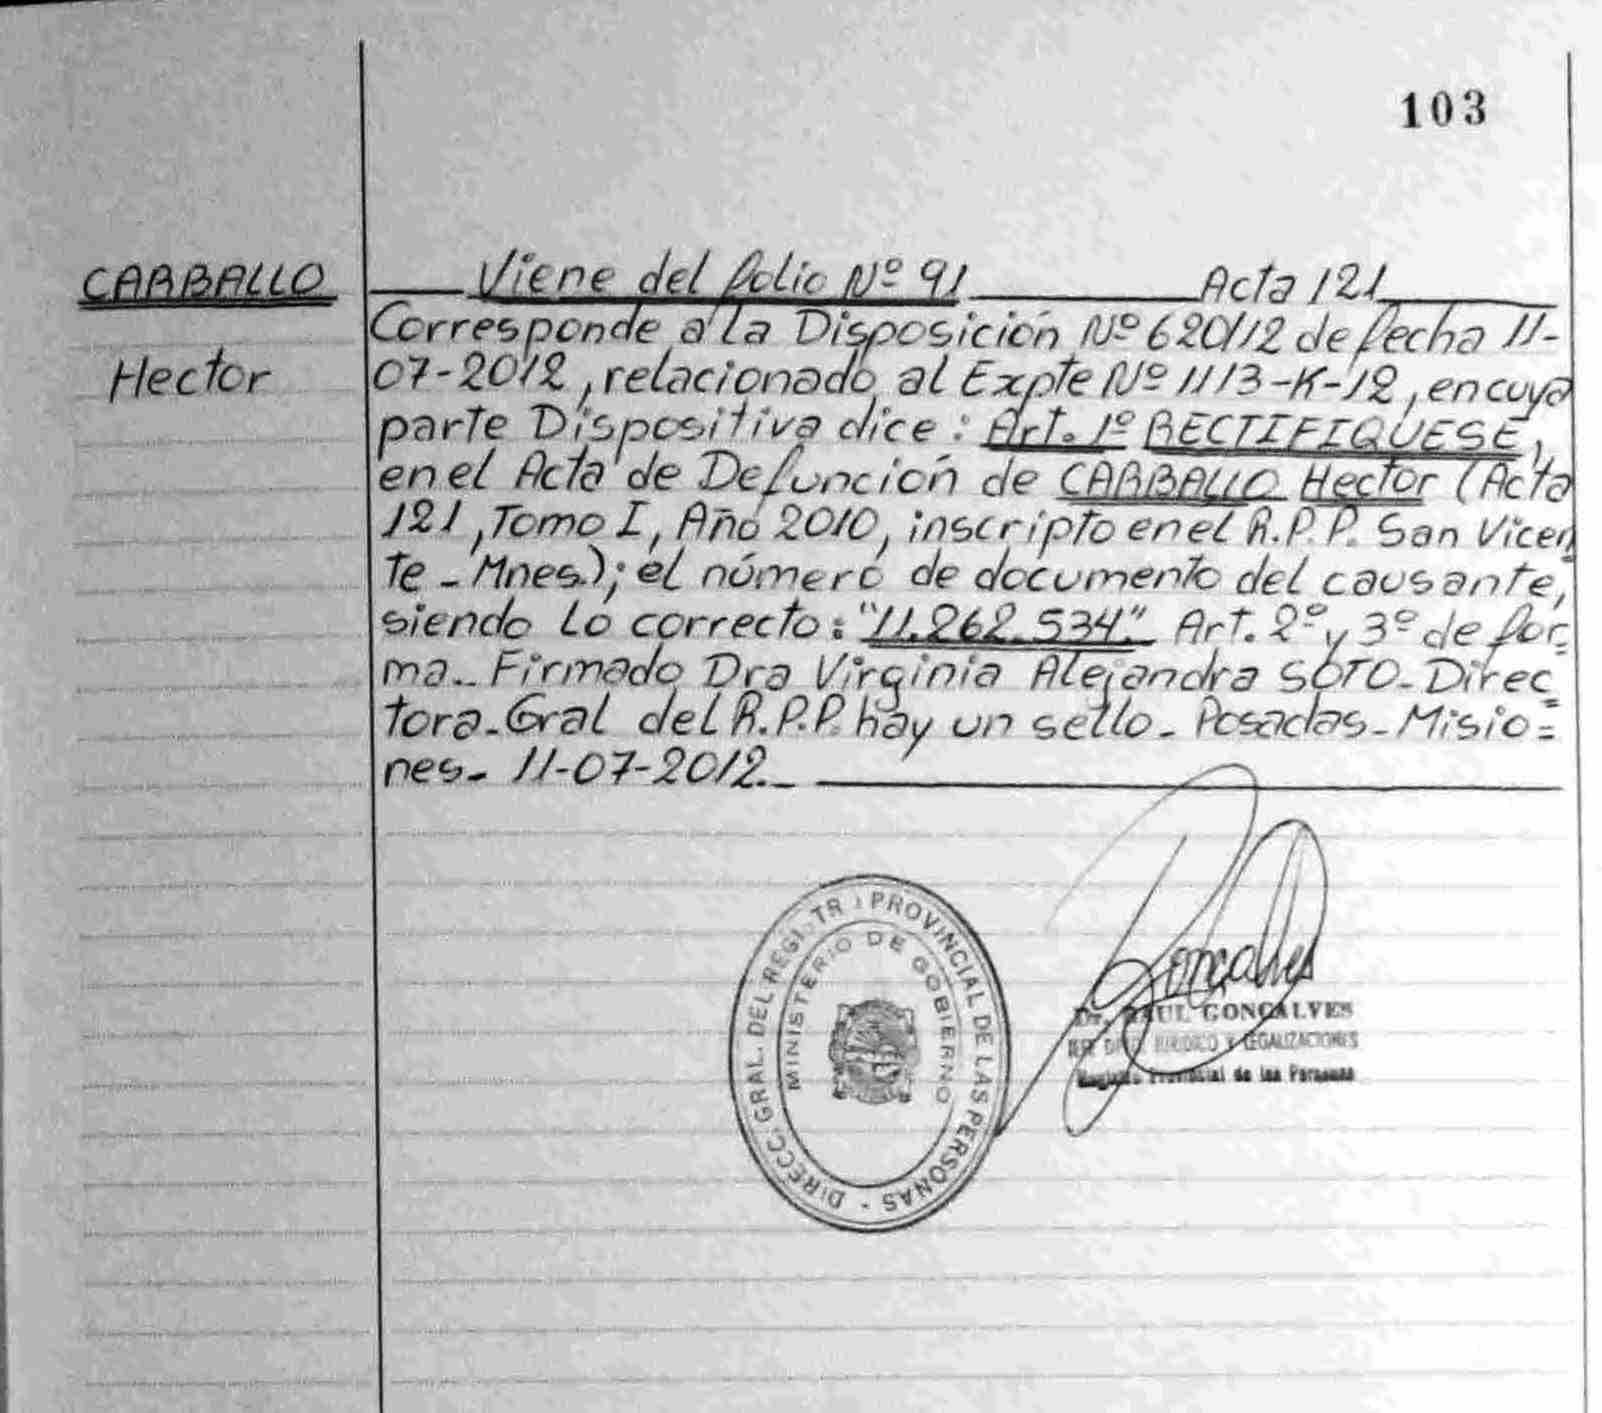 103
CARBALLO
Hector
Viene del folio Nº 91 Acta 121
Corresponde a la Disposición Nº 620/12 de fecha 11-
07-2012, relacionado al Expte Nº 1113-K-12, en cuya
parte Dispositiva dice: Art. 1º RECTIFIQUESE,
en el Acta de Defunción de CARBALLO Hector (Acta
121, Tomo I, Año 2010, inscripto en el R.P.P. San Vicen
te - Mnes.); el número de documento del causante,
siendo lo correcto: "11.262.534". Art. 2º y 3º de for=
ma.. Firmado Dra Virginia Alejandra SOTO - Direc=
tora - Gral del R.P.P. hay un sello - Posadas - Misio=
nes - 11-07-2012.-
DIRECC. GRAL. DEL REGISTR PROVINCIAL DE LAS PERSONAS -
MINISTERIO DE GOBIERNO
Gonçalves
Dr. RAUL GONCALVES
JURIDICO Y LEGALIZACIONES
Registro Provincial de las Personas